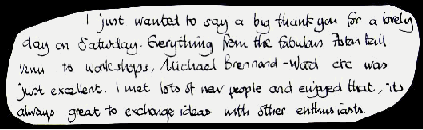 I just wanted to say a big thank you for a lovely
day on Saturday. Everything from the fabulous Aston Hall
venue to workshops, Michael Brennand-Wood etc was
just excellent. I met lots of new people and enjoyed that, its
always great to exchange ideas with other enthusiasts